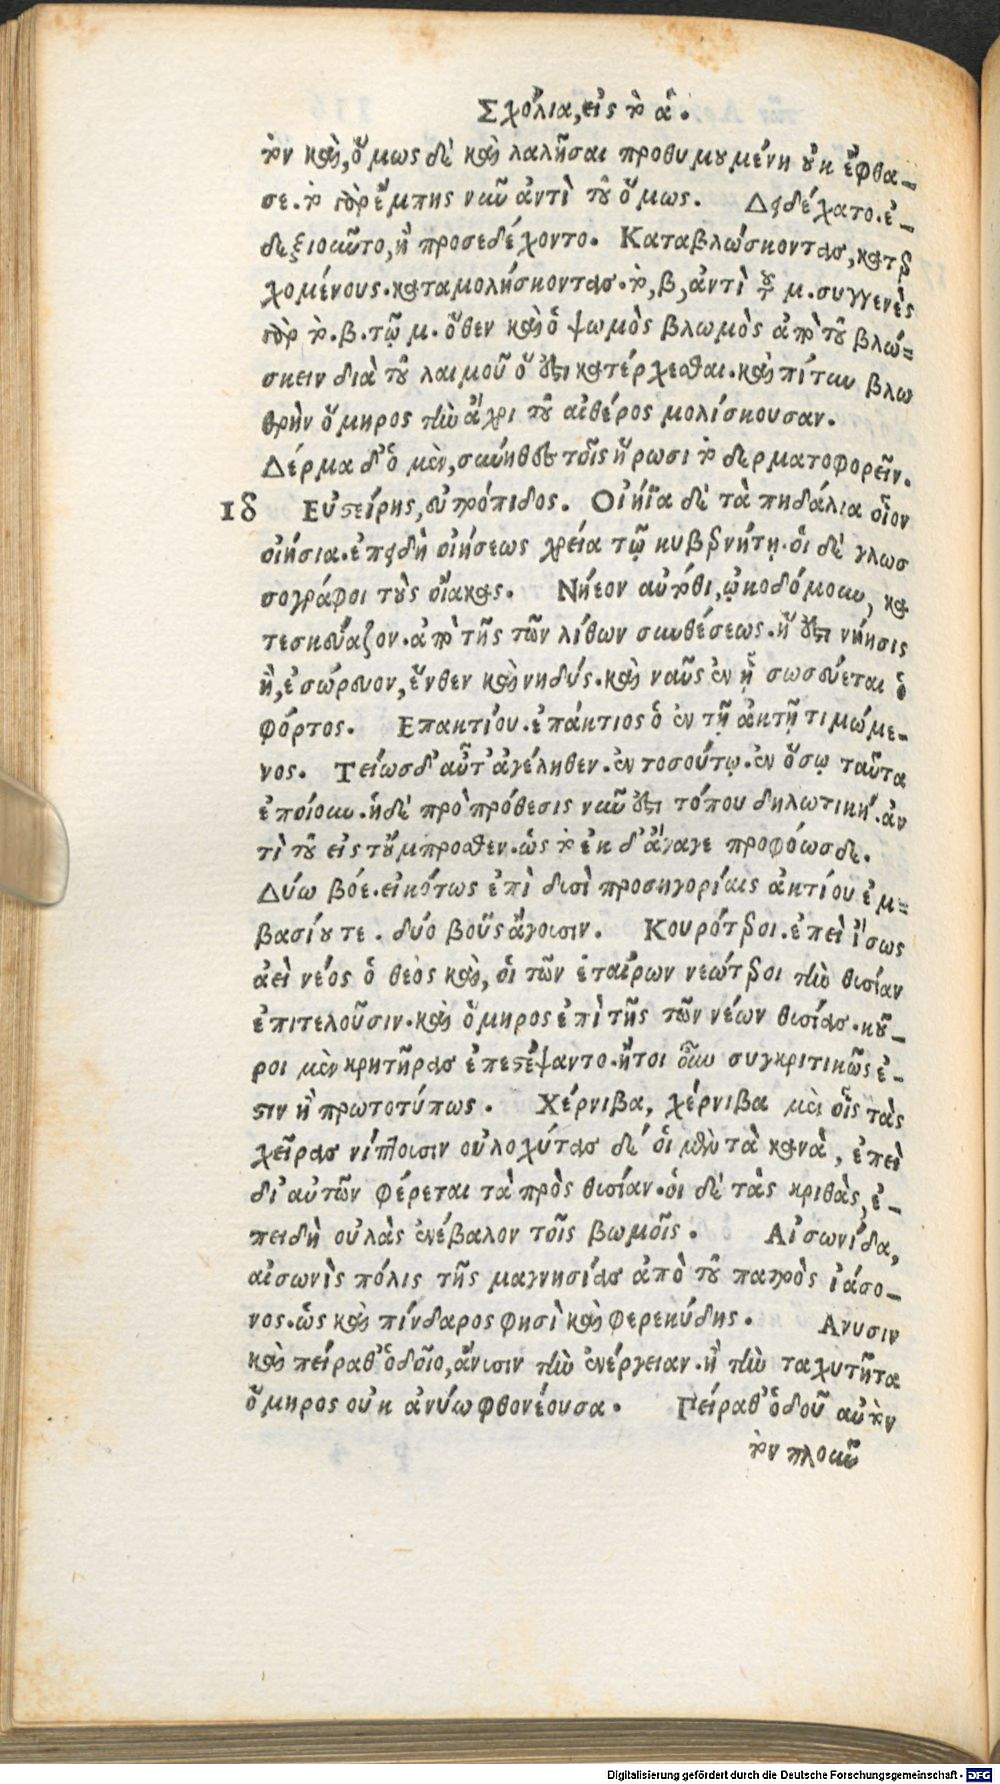 Σχόλια, εἰς τὸ α.
τὸν καὶ, ὅμως δὲ καὶ λαλῆσαι προθυμουμένη οὐκ ἔφθα-
σε. τὸ γὰρ ἔμπης νῦν ἀντὶ τοῦ ὅμως. Δειδέχατο. ἐ-
δεξιοῦτο, ἢ προσεδέχοντο. Καταβλώσκοντας, κατερ
χομένους. καταμολήσκοντας. τὸ, β, ἀντὶ τοῦ μ. συγγενὲς
γὰρ τὸ. β. τῷ μ. ὅθεν καὶ ὁ ψωμὸς βλωμὸς ἀπὸ τοῦ βλώ=
σκειν διὰ τοῦ λαιμοῦ ὅ ἐστι κατέρχεσθαι. καὶ πίτυν βλω
θρὴν ὅμηρος τὴν ἄχρι τοῦ αἰθέρος μολίσκουσαν.
Δέρμα δ' ὁ μὲν, σύνηθες τοῖς ἥρωσι τὸ δερματοφορεῖν.
ιδ Εὐστείρης, εὐτρόπιδος. Οἰήϊα δὲ τὰ πηδάλια οἷον
οἰήσια. ἐπειδὴ οἰήσεως χρεία τῷ κυβερνήτῃ. οἱ δὲ γλωσ
σογράφοι τοὺς οἴακας. Νήεον αὐτόθι, ᾠκοδόμουν, κα
τεσκεύαζον. ἀπὸ τῆς τῶν λίθων συνθέσεως. ἥ ἐστι νήησις
ἢ, ἐσώρευον, ἔνθεν καὶ νηδύς. καὶ ναῦς ἐν ᾗ σωσεύεται ὁ
φόρτος. Επακτίου. ἐπάκτιος ὁ ἐν τῇ ἀκτῇ τιμώμε-
νος. Τείωσδ' αὖτ' ἀγέληθεν. ἐν τοσούτῳ. ἐν ὅσῳ ταῦτα
ἐποίουν. ἡ δὲ προ πρόθεσις νῦν ἐστι τόπου δηλωτική. ἀν
τὶ τοῦ εἰς τοὔμπροσθεν. ὡς τὸ ἐκ δ' ἄγαγε προφόωσδε.
Δύω βόε. εἰκότως ἐπὶ δυσὶ προσηγορίαις ἀκτίου ἐμ=
βασίου τε. δύο βοῦς ἄγουσιν. Κουρότεροι. ἐπεὶ ἴσως
ἀεὶ νέος ὁ θεὸς καὶ, οἱ τῶν ἑταίρων νεώτεροι τὴν θυσίαν
ἐπιτελοῦσιν. καὶ ὅμηρος ἐπὶ τῆς τῶν νέων θυσίας. κοῦ-
ροι μὲν κρητῆρας ἐπεστέψαντο. ἤτοι οὖν συγκριτικῶς ἐ-
στιν ἢ πρωτοτύπως. Χέρνιβα, χέρνιβα μὲν οἷς τὰς
χεῖρας νίπτουσιν οὐλοχύτας δέ οἱ μὲν τὰ κανᾶ, ἐπεὶ
δι' αὐτῶν φέρεται τὰ πρὸς θυσίαν. οἱ δὲ τὰς κριθὰς, ἐ-
πειδὴ οὐλὰς ἐνέβαλον τοῖς βωμοῖς. Αἰσωνίδα,
αἰσωνὶς πόλις τῆς μαγνησίας ἀπὸ τοῦ πατρὸς ἰάσο-
νος. ὡς καὶ πίνδαρος φησὶ καὶ φερεκύδης. Ανυσιν
καὶ πείραθ' ὁδοῖο, ἄνυσιν τὴν ἐνέργειαν. ἢ τὴν ταχυτῆτα
ὅμηρος οὐκ ἀνύω φθονέουσα. Πείραθ' ὁδοῦ αὐτὸν
τὸν πλοῦν
Digitalisierung gefördert durch die Deutsche Forschungsgemeinschaft - DFG